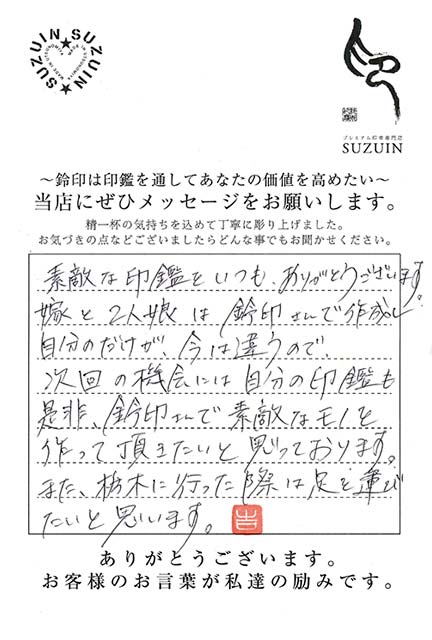 SUZUIN★SUZUIN★
印
プレミアム印章専門店
SUZUIN
～鈴印は印鑑を通してあなたの価値を高めたい～
当店にぜひメッセージをお願いします。
精一杯の気持ちを込めて丁寧に彫り上げました。
お気づきの点などございましたらどんな事でもお聞かせください。
素敵な印鑑をいつも、ありがとうございます。
嫁と2人娘は鈴印さんで作成し
自分のだけが、今は違うので、
次回の機会には自分の印鑑も
是非、鈴印さんで素敵なモノを
作って頂きたいと思っております。
また、栃木に行った際は足を運び
たいと思います。
吉
ありがとうございます。
お客様のお言葉が私達の励みです。